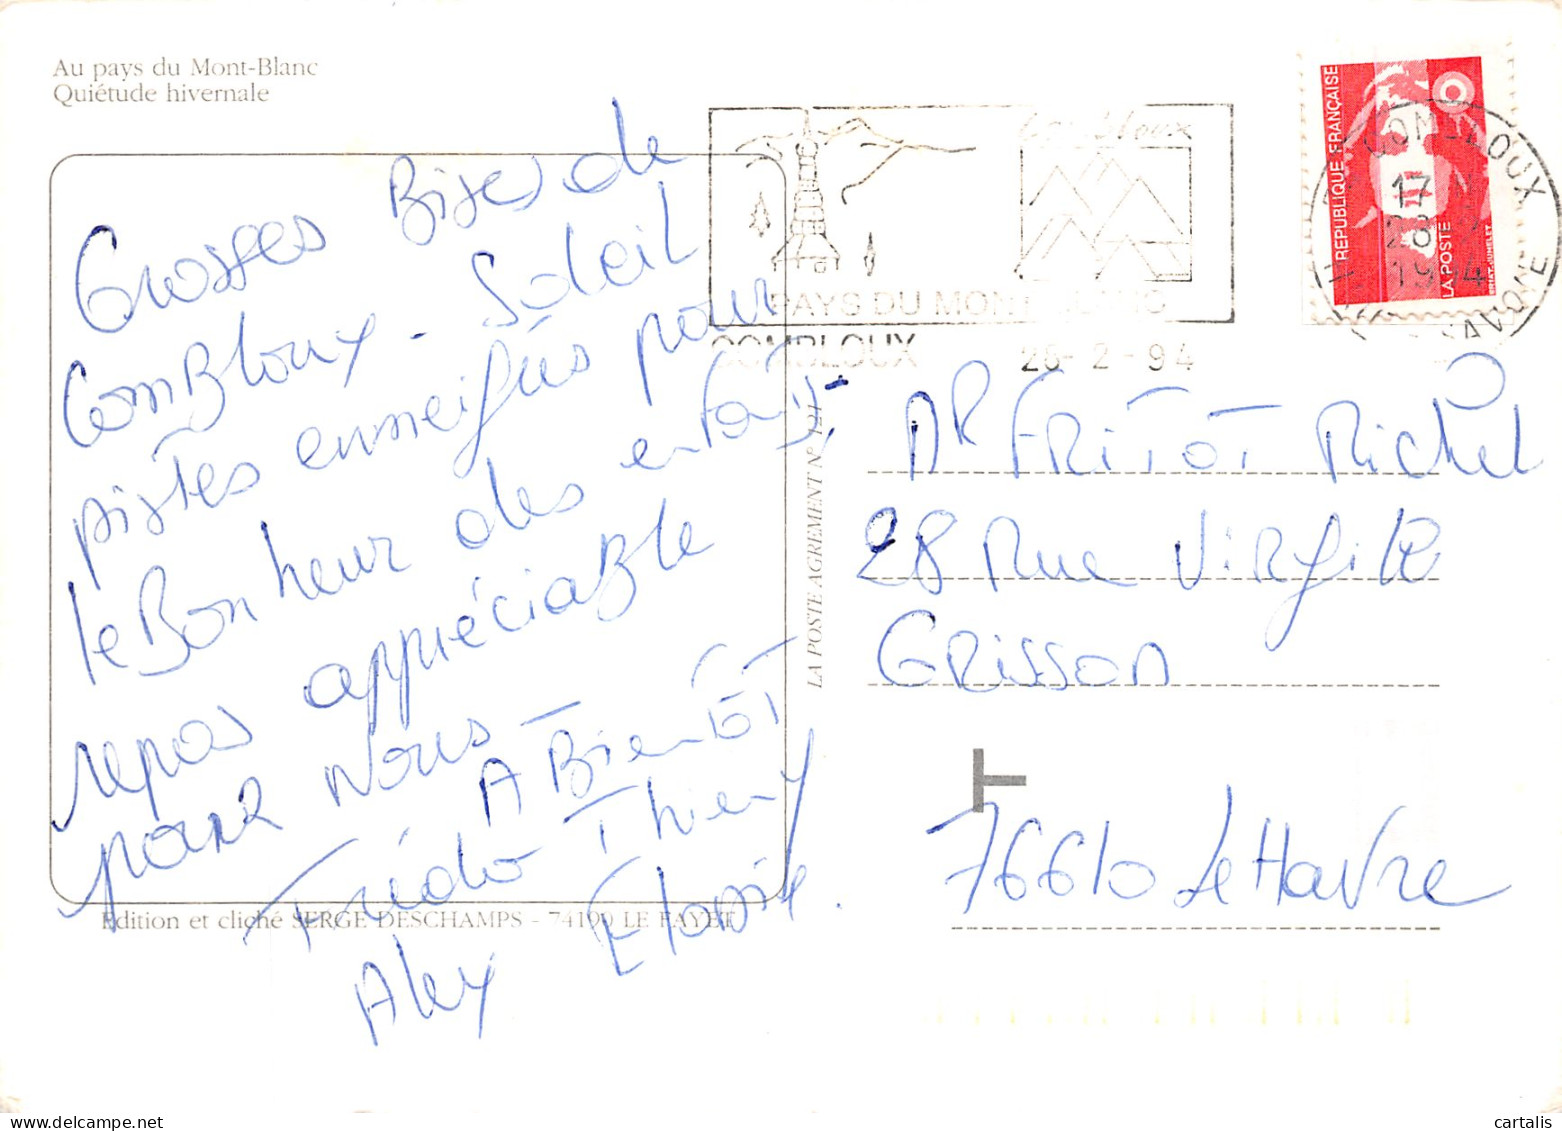 Au pays du Mont-Blanc
Quiétude hivernale
Grosses Bises de
Combloux - Soleil
pistes enneigées pour
le Bonheur des enfants,
repos appréciable
pour nous -
A Bientôt
Frédo Thierry
Alex Elodie.
Edition et cliché SERGE DESCHAMPS - 74190 LE FAYET
LA POSTE AGREMENT N° 121
Combloux
PAYS DU MONT BLANC
COMBLOUX 26-2-94
REPUBLIQUE FRANÇAISE
LA POSTE
COMBLOUX
17
1994
SAVOIE
Mr FRITOT Michel
28 Rue Virgile
GRISSON
T
76610 Le Havre
cartalis